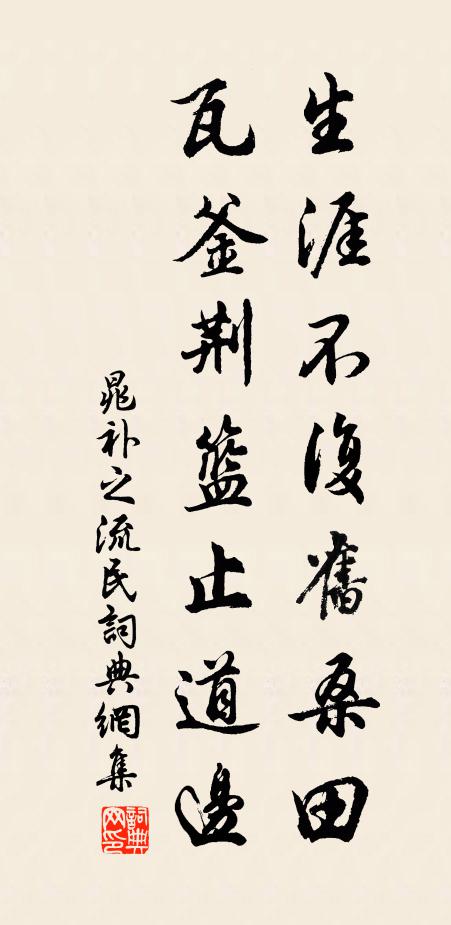 生涯不復舊桑田
瓦釜荆籃止道邊
晁补之流民詞典網集
詞典网印